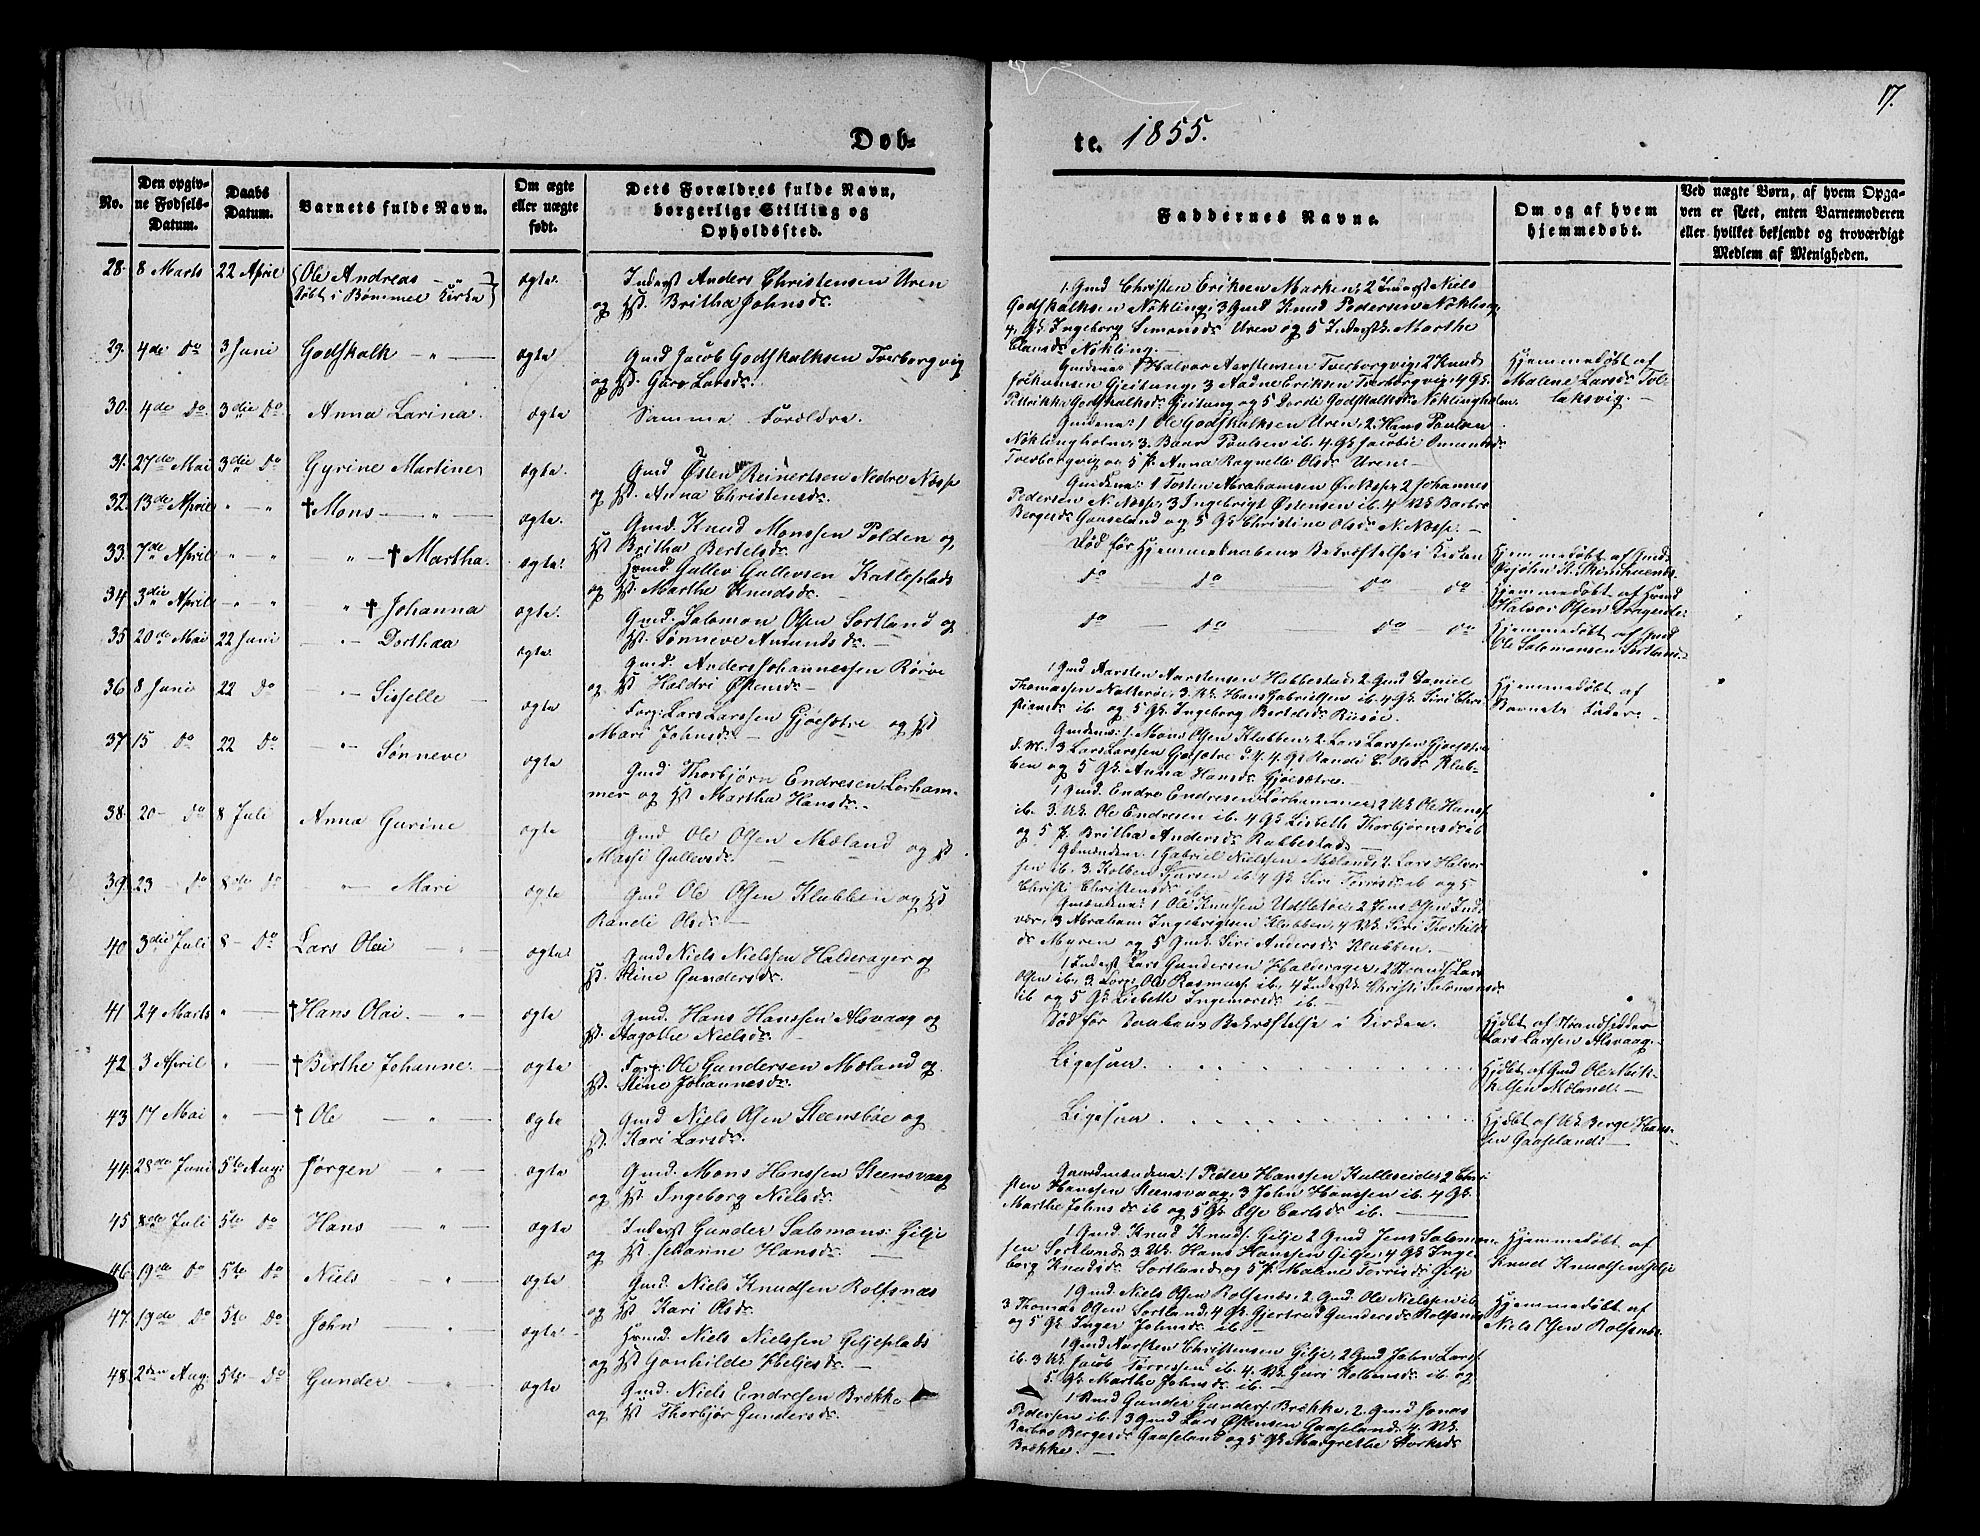 17.
Døb-
te. 1855.
No.
Den opgiv-
ne Fødsels-
Datum.
Daabs
Datum.
Barnets fulde Navn.
Om ægte
eller uægte
født.
Dets Forældres fulde Navn,
borgerlige Stilling og
Opholdssted.
Faddernes Navne.
Om og af hvem
hjemmedøbt.
Ved uægte Børn, af hvem Opga-
ven er skeet, enten Barnemoderen
eller hvilket bekjendt og troværdigt
Medlem af Menigheden.
28. 8 Marts 22 April Ole Andreas - „
døbt i Bømmel Kirke
ægte. Inderst Anders Christensen Uren
og H. Britha Johnsdr.
1 Gmd Christen Eriksen Marken, 2 Inderst Niels
Godskalksen Nøkling, 3 Gmd Knud Pedersen Nøkling,
4, Gk. Ingeborg Simonsdr Uren og 5 Inderstk. Marthe
Clausdr Nøkling. —
29. 4de Do 3 Juni Godskalk - „ —
ægte Gmd Jacob Godskalksen Tverborgvig
og H. Guro Larsdr.
Gmdene: 1 Halvor Aarstensen Tverborgvig, 2 Knud
Jockumsen Gjeitung, 3 Aadne Eriksen Tverborgvig, 4 Gk.
Petrikke Godskalksdr Gjeitung og 5 Dordi Godskalksdr Nøklingholm.
Hjemmedøbt af
Malene Larsdr Tol-
laksvig. —
30. 4de Do. 3die Do. Anna Larina.
ægte Samme Forældre.
Gmdene: 1 Ole Godskalksen Uren, 2. Hans Poulsen
Nøklingholm, 3. Baar Poulsen ib. 4 Gk Jacobie Omundsdr
Tverborgvig og 5 P. Anna Ragnelle Olsdr Uren. —
31. 27de Mai 3die Do Gyrine Martine
ægte. Gmd Østen Reinertsen Nedre Næsse
og H. Anna Christensdr.
Gmdene: 1 Tosten Abrahamsen Ø. Næsse, 2 Johannes
Pedersen N. Næsse, 3 Ingebrigt Østensen ib. 4 Uk Barbro
Bergesdr Gaaseland og 5 Gk Christine Olsdr N. Næsse. —
32. 13de April „ - „ † Mons — „ —
ægte. Gmd. Knud Monssen Polden og
H Britha Bertelsdr.
Død før Hjemmedaabens Bekræftelse i Kirken
33. 7de April „ „ „ — † Martha.
ægte. Hsmd Gullev Gullevsen Katleplads
og H. Marthe Knudsdr. —
do — do do do
Hjemmedøbt af Gmd.
34 3die April „ - „ „ † Johanna
ægte. Gmd. Salomon Olsen Sortland og
H. Sønneve Amundsdr.
do — do — do do
Hjemmedøbt af Hsmd
Halvor Olsen
Hjemmedøbt af Gmd
Ole Salomonsen Sortland. —
35 20de Mai 22 Juni - „ - Dorthea
ægte. Gmd. Anders Johannessen Rørvo
og H Haldri Østensdr —
1 Gmd Aarsten Aarstensen Hebbestad, 2. Gmd Daniel
Thomassen Nætterøi, 3. Uk. Hans Gabrielsen ib. 4 Gk. Siri Chri-
stiansdr ib og 5 Gk. Ingeborg Bertelsdr
Hjemmedøbt af
Barnets Fader. —
36 8 Juni 22 Do — „ - Sisselle —
ægte Forp: Lars Larssen Gjøesætre og H
Mari Johnsdr. —
Gmdene: 1 Mons Olsen Klubben, 2. Lars Larssen Gjøesætre
3 Lars Larssen Gjøesætre 4 Gk Randi C. Olsdr Klub-
ben og 5 Gk. Anna Hansdr Gjøesætre.
37. 15 Do 22 Do — „ - Sønneve
ægte Gmd. Thorbjørn Endresen Lørham-
mer og H Martha Hansdr. -
1 Gmd. Endre Endresen Lørhammer, 2 Uk Ole Hanss.
ib. 3. Uk. Ole Endresen ib. 4 Gk Lisbeth Thorbjørnsdr ib
og 5 P. Britha Andersdr Rabbestad. —
38. 20 - Do 8 Juli Anna Gurine
ægte Gmd Ole Olsen Mæland og H
Massi Gullevsdr. —
Gdmændene: 1 Gabriel Nielssen Mæland, 2. Lars Halvor-
sen ib. 3. Kolben Sjursen ib. 4 Gk. Siri Torrisdr ib og 5
Christi Christensdr ib.
39. 23 - Do 8de Do — „ - Mari
ægte Gmd Ole Olsen Klubben og H
Randi Olsdr —
Gmændene: 1 Ole Knudsen Udletøe, 2 Jens Olsen Ind-
vær, 3 Abraham Ingebrigtsen Klubben, 4 Uk. Siri Thorkilds-
dr Myren og 5 Gmk. Siri Andersdr Klubben.
40 3die Juli 8 - Do Lars Olai — „ —
ægte. Gmd Niels Nielssen Halderager og
H. Stine Gundersdr. —
1 Inderst Lars Gundersen Halderager, 2 Strands. Lars
Olsen ib, 3. Forp. Ole Rasmuss. ib, 4 Inderstk. Christi Salomonsdr
ib og 5 Gk Lisbeth Ingemorsdr ib. —
41. 24 Marts „ — † Hans Olai. — „ —
ægte Gmd. Hans Hanssen Alsvaag og
H. Aagothe Nielsdr.
Død før Daabens Bekræftelse i Kirken.
Hjdøbt af Strandsidder
Lars Larssen Alsvaag. —
42. 3 April „ — † Birthe Johanne. —
ægte Forp: Ole Gundersen Mæland og
H. Stine Johannesdr.
Ligesaa. . . . . . . . . .
Hjdøbt af Gmd Ole Mik-
kelsen Mæland. —
43 17 Mai „ — † Ole — „ —
ægte Gmd Niels Olsen Steensbøe og
H. Kari Larsdr.
Ligesaa . . . . . . . . . .
Hjdøbt af Uk Berge Hans-
sen Gaaseland. —
44. 28de Juni 5te Aug: Jørgen — „ —
ægte Gmd. Mons Hanssen Steensvaag
og H Ingeborg Nielsdr.
Gaardmændene: 1 Peder Hanssen Kulleseide, 2 Chri-
sten Hanssen Steensvaag, 3 John Hanssen ib. 4 Gk.
Marthe Johnsdr ib og 5 Gk Else Carlsdr ib. —
45 8de Juli 5te Do Hans — „ —
ægte Inderst Gunder Salomons: Gilje
og H Johanne Hansdr. —
1 Gmd. Knud Knuds. Gilje 2 Gmd Jens Salomon-
sen Sortland, 3 Uk. Hans Hanssen Gilje, 4 Gk Inge-
borg Knudsdr Sortland og 5 P. Malene Torrisdr Gilje
Hjemmedøbt af
Knud Knudsen Gilje
46 19de Do 5te Do Niels — „ —
ægte Gmd. Niels Knudsen Rolfsnæs
og H Kari Olsdr.
1 Gmd. Niels Olsen Rolfsnæs, 2. Gmd. Ole Nielssen ib.
3 Thomas Olsen Sortland, 4 Gk Gjertrud Gundersdr Rolfsnæs
og 5 Gk Inger Johnsdr ib. —
Hjemmedøbt af
Niels Olsen Rolfsnæs.
47. 19de Do 5te Do John — „ —
ægte - Hsmd. Niels Nielssen Giljeplads
og H Gonhilde Heljesdr. —
1 Gmd Aarsten Christensen Gilje, 2 Gmd John Larss.
ib. 3 Uk Jacob Torressen ib. 4. Uk Guri Kolbensdr ib og
5. Gk Marthe Johnsdr ib. —
48. 2den Aug. 5te Do Gunder — „ —
ægte Gmd. Niels Endresen Brekke
og H Thorbjør Gundersdr.
1 Gmd Gunder Gunders. Brekke, 2. Gmd Jonas
Pedersen ib. 3 Gmd Lars Østensen Gaaseland, 4. Uk.
Barbro Bergesdr Gaaseland og 5 Gk Margrethe Storksdr
Brekke. —